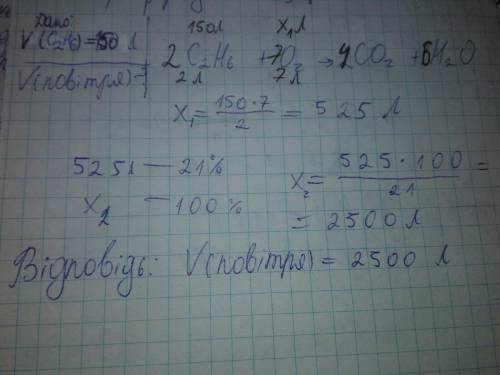 Дано:
V(C₂H₆)=150 л
V(повітря)-?
150л x₁л
2C₂H₆ + 7O₂ → 4CO₂ + 6H₂O
2л 7л
x₁ = 150·7/2 = 525 л
525л — 21%
x₂ — 100%
x₂ = 525·100/21 =
= 2500 л
Відповідь: V(повітря) = 2500 л